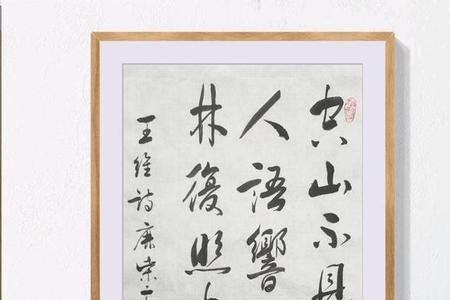 空山不見
人語響
林復照
王維詩